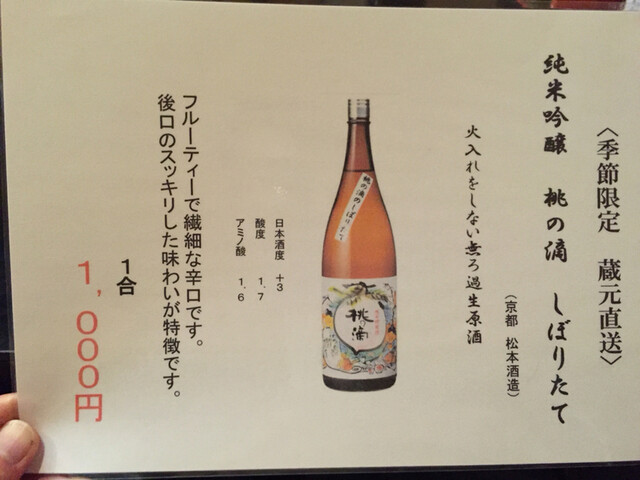 〈季節限定　蔵元直送〉
純米吟醸　桃の滴　しぼりたて
（京都　松本酒造）
火入れをしない無ろ過生原酒
桃の滴のしぼりたて
桃滴
日本酒度　＋３
酸度　１．７
アミノ酸　１．６
フルーティーで繊細な辛口です。
後口のスッキリした味わいが特徴です。
１合
１，０００円